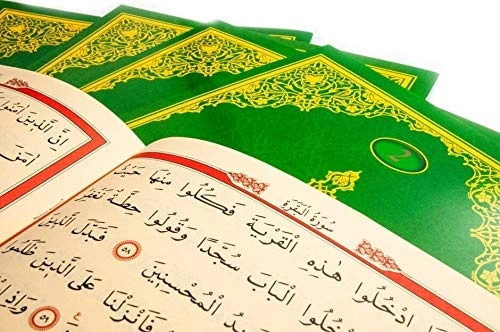 2
اِنَّ الَّذِينَ اٰمَنُوا
اٰمَنَ
سُورَةُ الْبَقَرَةِ
ادْخُلُوا هٰذِهِ الْقَرْيَةَ فَكُلُوا مِنْهَا
الْبَابَ سُجَّدًا وَقُولُوا حِطَّةٌ
الْمُحْسِنِينَ ٥٨ فَبَدَّلَ الَّذِينَ
فَاَنْزَلْنَا عَلَى الَّذِينَ ظَلَمُوا
٥٩ وَاِذِ